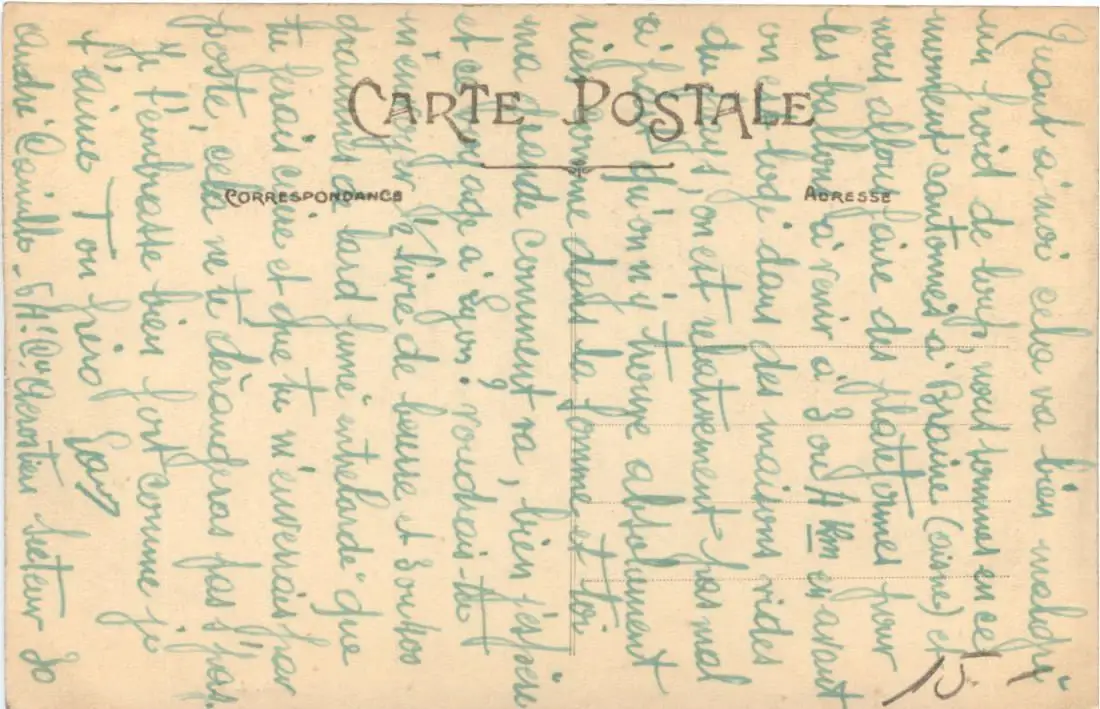 CARTE POSTALE
CORRESPONDANCE
ADRESSE
Quant à moi cela va bien malgré
un froid de loup, nous sommes en ce
moment cantonnés à Braisne (aisne) et
nous allons faire des plateformes pour
les ballons à venir à 3 ou 4 km en avant
on est logé dans des maisons vides
du pays, on est relativement pas mal
à part qu'on n'y trouve absolument
rien comme dans la Somme et toi
ma grande comment va, bien j'espère
et ce voyage à Lyon? voudrais-tu
m'envoyer 1 livre de beurre et 3 ou 400
grammes de lard fumé "entrelardé" que
tu ferais cuire et que tu m'enverrais par
poste, cela ne te dérangeras pas j'pas.
Je t'embrasse bien fort comme je
t'aime Ton frère
15